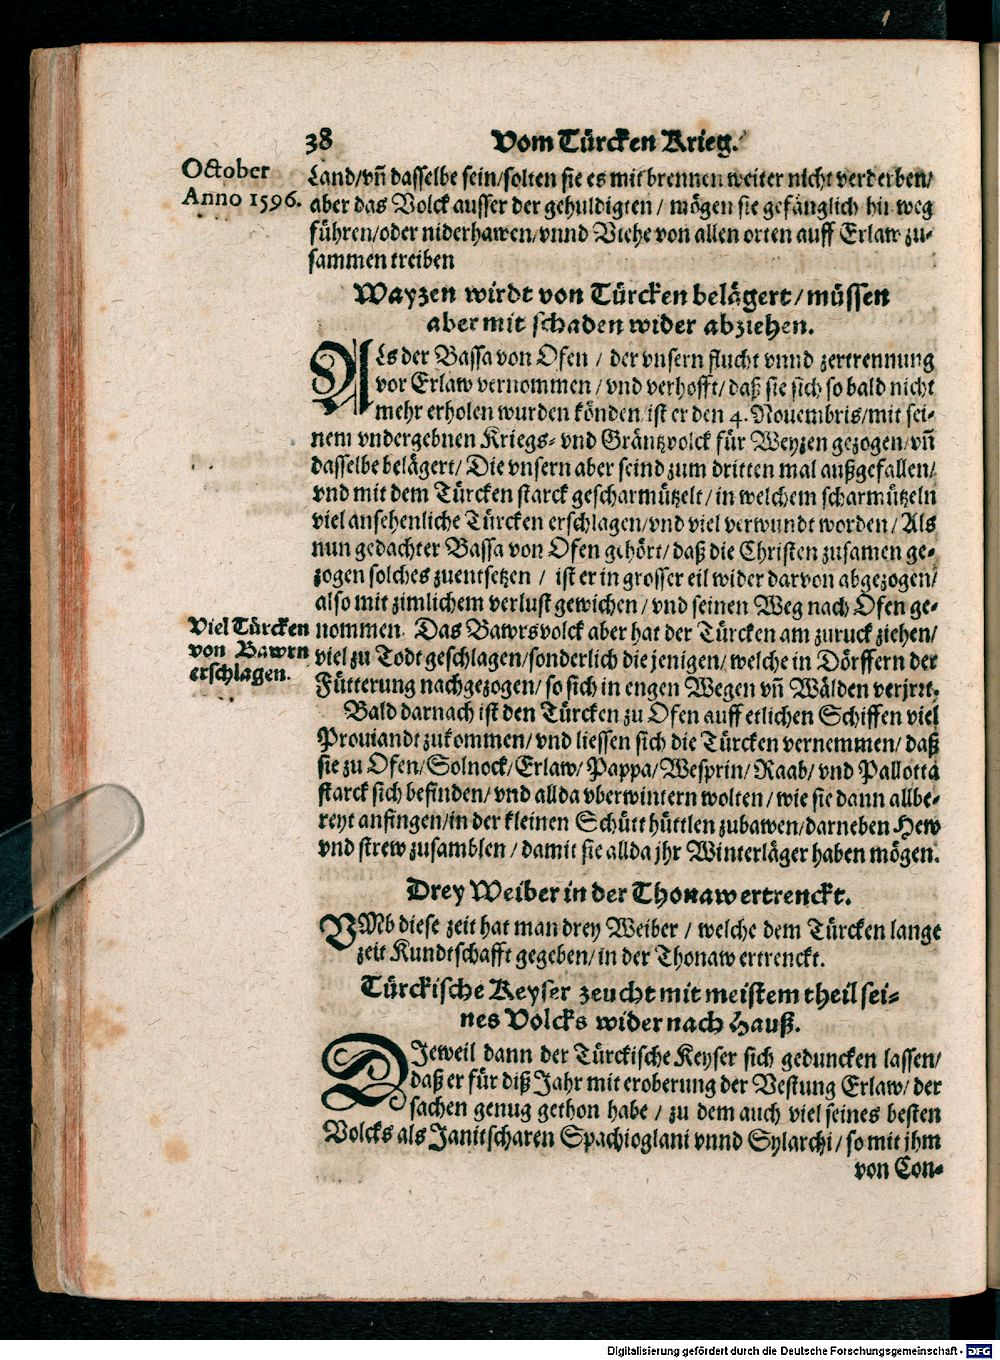 38 Vom Türcken Krieg.
October
Anno 1596.
Land/vñ dasselbe sein/solten sie es mit brennen weiter nicht verderben/
aber das Volck ausser der gehuldigten / mögen sie gefänglich hinweg
führen/oder niderhawen/vnnd Viehe von allen orten auff Erlaw zu-
sammen treiben
Wayzen wirdt von Türcken belägert/müssen
aber mit schaden wider abziehen.
ALs der Bassa von Ofen / der vnsern flucht vnnd zertrennung
vor Erlaw vernommen / vnd verhofft/daß sie sich so bald nicht
mehr erholen wurden könden/ist er den 4. Nouembris/mit sei-
nem vndergebnen Kriegs- vnd Gräntzvolck für Weyzen gezogen/vñ
dasselbe belägert/ Die vnsern aber seind zum dritten mal außgefallen/
vnd mit dem Türcken starck gescharmützelt/in welchem scharmützeln
viel ansehenliche Türcken erschlagen/vnd viel verwundt worden/Als
nun gedachter Bassa von Ofen gehört/daß die Christen zusamen ge-
zogen solches zuentsetzen / ist er in grosser eil wider darvon abgezogen/
also mit zimlichem verlust gewichen/vnd seinen Weg nach Ofen ge-
nommen. Das Bawrsvolck aber hat der Türcken am zuruck ziehen/
viel zu Todt geschlagen/sonderlich die jenigen/welche in Dörffern der
Fütterung nachgezogen/so sich in engen Wegen vñ Wälden verjrrt.
Viel Türcken
von Bawrn
erschlagen.
Bald darnach ist den Türcken zu Ofen auff etlichen Schiffen viel
Prouiandt zukommen/vnd liessen sich die Türcken vernemmen/daß
sie zu Ofen/Solnock/Erlaw/Pappa/Wesprin/Raab/vnd Pallotta
starck sich befinden/vnd allda vberwintern wolten/wie sie dann allbe-
reyt anfingen/in der kleinen Schütt hüttlen zubawen/darneben Hew
vnd strew zusamblen/damit sie allda jhr Winterläger haben mögen.
Drey Weiber in der Thonaw ertrenckt.
VMb diese zeit hat man drey Weiber / welche dem Türcken lange
zeit Kundtschafft gegeben/in der Thonaw ertrenckt.
Türckische Keyser zeucht mit meistem theil sei-
nes Volcks wider nach Hauß.
DJeweil dann der Türckische Keyser sich geduncken lassen/
daß er für diß Jahr mit eroberung der Vestung Erlaw/der
sachen genug gethon habe / zu dem auch viel seines besten
Volcks als Janitscharen Spachioglani vnnd Sylarchi/so mit jhm
von Con-
Digitalisierung gefördert durch die Deutsche Forschungsgemeinschaft - DFG